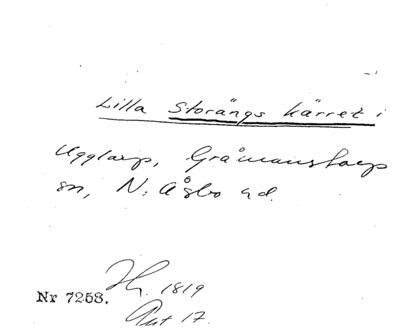 Lilla Storängs kärret i
Ugglarp, Gråmanstorps
sn, N. Åsbo hd.
Nr 7258. H. 1819
Akt 17.